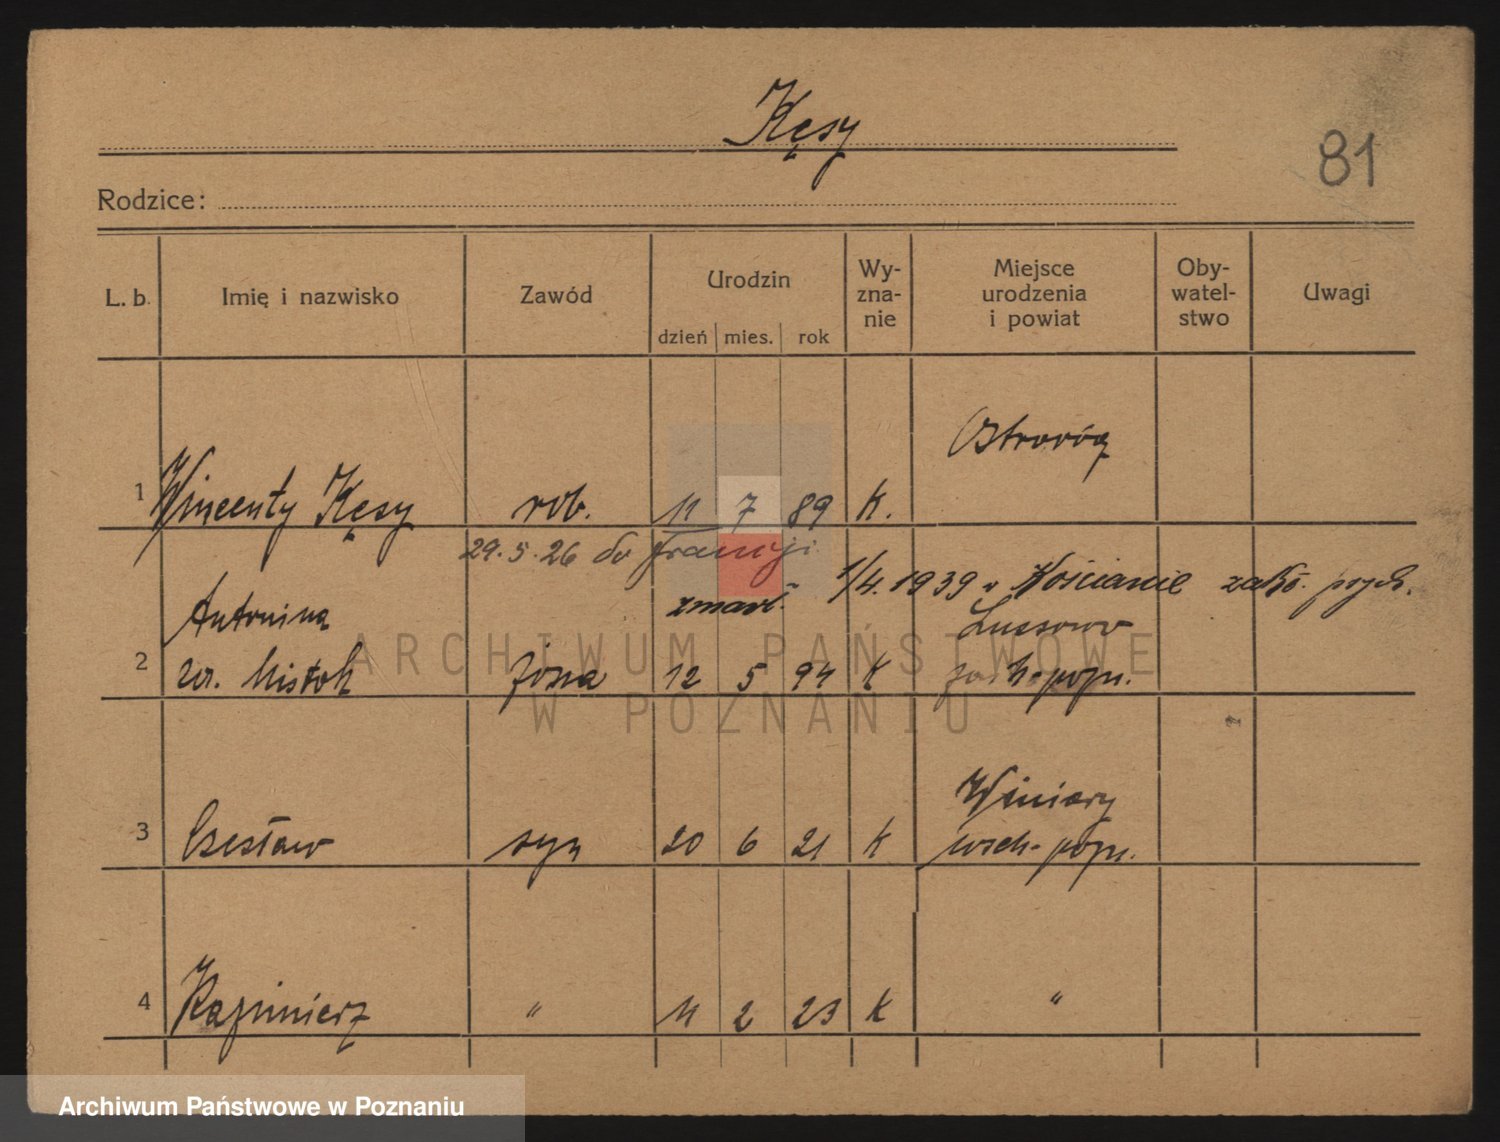 Kęsy
81
Rodzice:
L. b. Imię i nazwisko Zawód Urodzin dzień mies. rok Wy-zna-nie Miejsce urodzenia i powiat Oby-watel-stwo Uwagi
Ostroróg
1 Wincenty Kęsy rob. 11 7 89 K.
29.5.26 do Francji
zmarł. 1/4.1939 w Kościanie zakł. psych.
Antonina Lussowo
2 ur. Mistak żona 12 5 94 K zach-pozn.
Winiary
3 Czesław syn 20 6 21 K wsch-pozn.
4 Kazimierz " 11 2 23 K "
ARCHIWUM PAŃSTWOWE
W POZNANIU
Archiwum Państwowe w Poznaniu